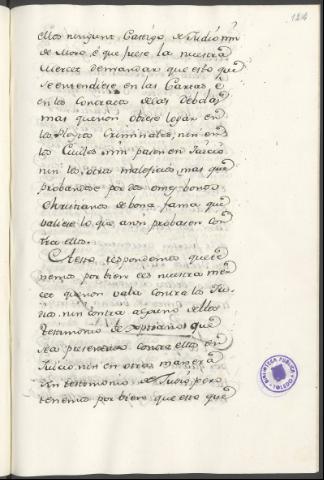 124
ellos ningunt Castigo de Judio nin
de Moro, é que fuese la nuestra
Merced demandar que esto que
se entendiese en las Cartas é
en los contractos de las debdas
mas que non obiese logar en
los Pleytos Criminales, nin en
los Cuiles nin pasen en Juicio
nin los otros maleficios, mas que
probandose por dos omes bonos
Christianos de bona fama que
valiese lo que ansi probasen con
tra ellos.
A esto respondemos que te
nemos por bien é es nuestra mer
ced que non vala contra los Ju
dios nin contra alguno de ellos
testimonio de Xptianos que
sea presentado contra ellos en
Juicio nin en otra manera
sin testimonio de Judio, pero
tenemos por bien que esto que
BIBLIOTECA PUBLICA TOLEDO